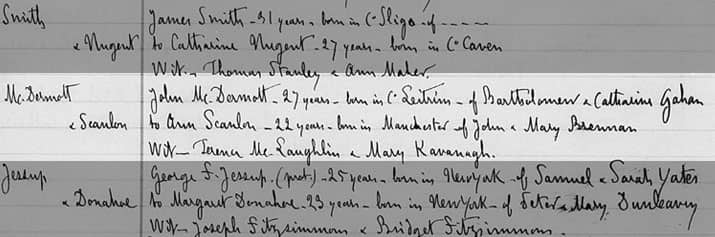 Smith James Smith - 31 years - born in Co Sligo - of - - - -
& Nugent to Catharine Nugent - 27 years - born in Co Cavan
Wit - Thomas Stanley & Ann Maher.
McDermott John McDermott - 27 years - born in Co Leitrim - of Bartholomew & Catharine Gahan
& Scanlon to Ann Scanlon - 22 years - born in Manchester - of John & Mary Brennan
Wit - Terence McLaughlin & Mary Kavanagh.
Jessup George F. Jessup. (prot.) - 25 years - born in New York - of Samuel & Sarah Yates
& Donahoe to Margaret Donahoe - 23 years - born in New York - of Peter & Mary Dunleavy
Wit - Joseph Fitzsimmons & Bridget Fitzsimmons.